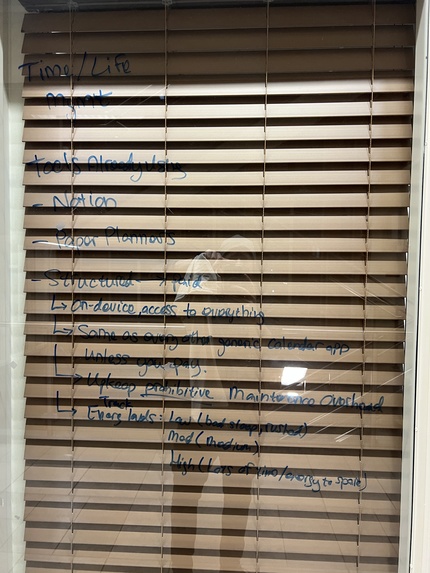 Time/Life
Mgmt
Tools Already Using
- Notion
- Paper Planners
- Structured →
↳ On-device, access to everything
↳ Same as every other generic calendar app
unless you pay.
↳ Upkeep prohibitive Maintenance overhead
↳ Track
Energy levels: Low (bad sleep, rushed)
Med (medium)
High (Lots of time/energy to spare)